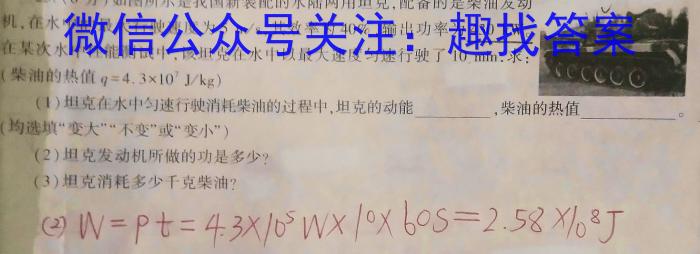 (6分)如图所示是我国新装配的水陆两用坦克,配备的是柴油发动
机,在水 微信公众号关注：趣找答案
在某次水 该坦克在水中以最大速度匀速行驶了10 min,求:
(柴油的热值 q=4.3×10⁷ J/kg)
(1)坦克在水中匀速行驶消耗柴油的过程中,坦克的动能________,柴油的热值________。
(均选填“变大”“不变”或“变小”)
(2)坦克发动机所做的功是多少?
(3)坦克消耗多少千克柴油?
(2) W=Pt=4.3×10⁵W×10×60S=2.58×10⁸J